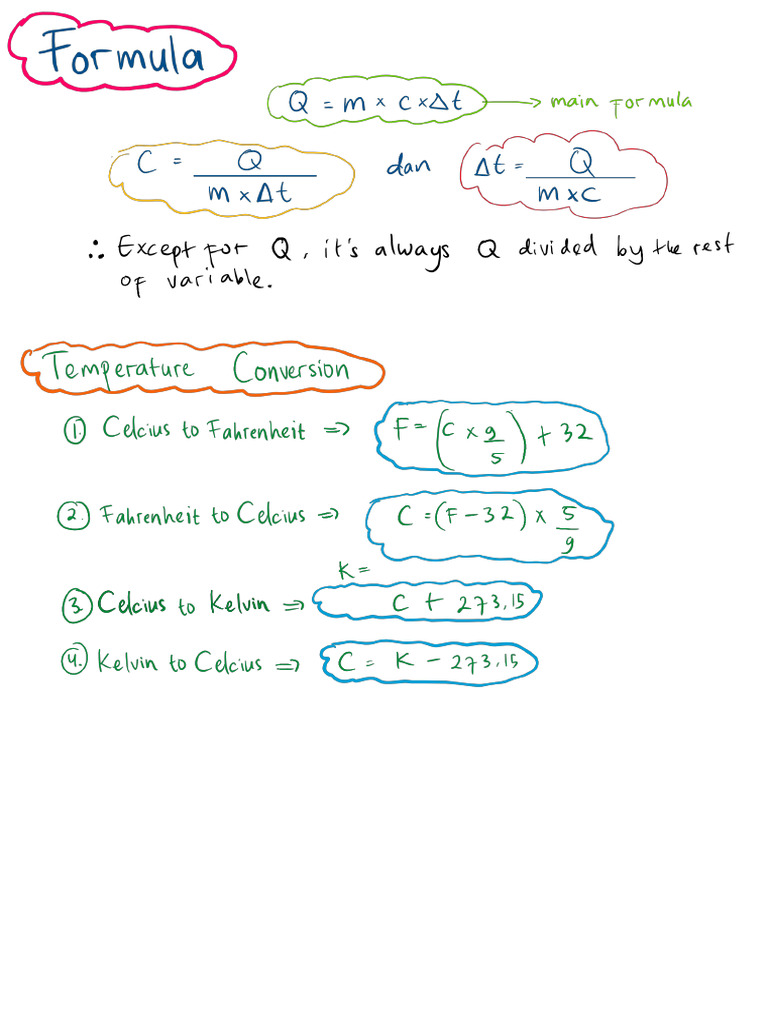 Formula
Q = m × c × Δt → main formula
C = Q / m × Δt dan Δt = Q / m × c
∴ Except for Q, it's always Q divided by the rest
of variable.
Temperature Conversion
1. Celcius to Fahrenheit ⇒ F = (C × 9/5) + 32
2. Fahrenheit to Celcius ⇒ C = (F − 32) × 5/9
K =
3. Celcius to Kelvin ⇒ C + 273,15
4. Kelvin to Celcius ⇒ C = K − 273,15